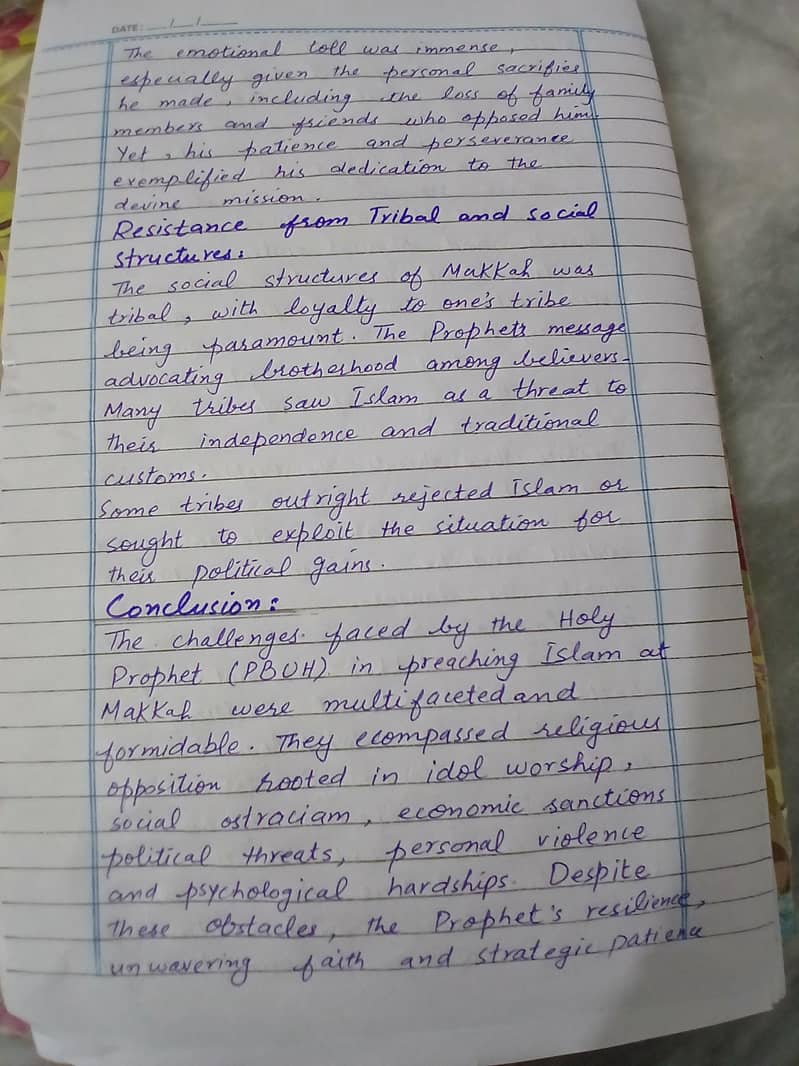 DATE: __/__/__
The emotional toll was immense,
especually given the personal sacrifies
he made, including the loss of family
members and friends who opposed him.
Yet, his patience and perseverance
exemplified his dedication to the
devine mission.
Resistance from Tribal and social
structures:
The social structures of Makkah was
tribal, with loyalty to one's tribe
being paramount. The Prophets message
advocating brotherhood among believers.
Many tribes saw Islam as a threat to
their independence and traditional
customs.
Some tribes outright rejected Islam or
sought to exploit the situation for
their political gains.
Conclusion:
The challenges faced by the Holy
Prophet (PBUH) in preaching Islam at
Makkah were multifaceted and
formidable. They ecompassed religious
opposition rooted in idol worship,
social ostraciam, economic sanctions
political threats, personal violence
and psychological hardships. Despite
these obstacles, the Prophet's resilience,
unwavering faith and strategic patience